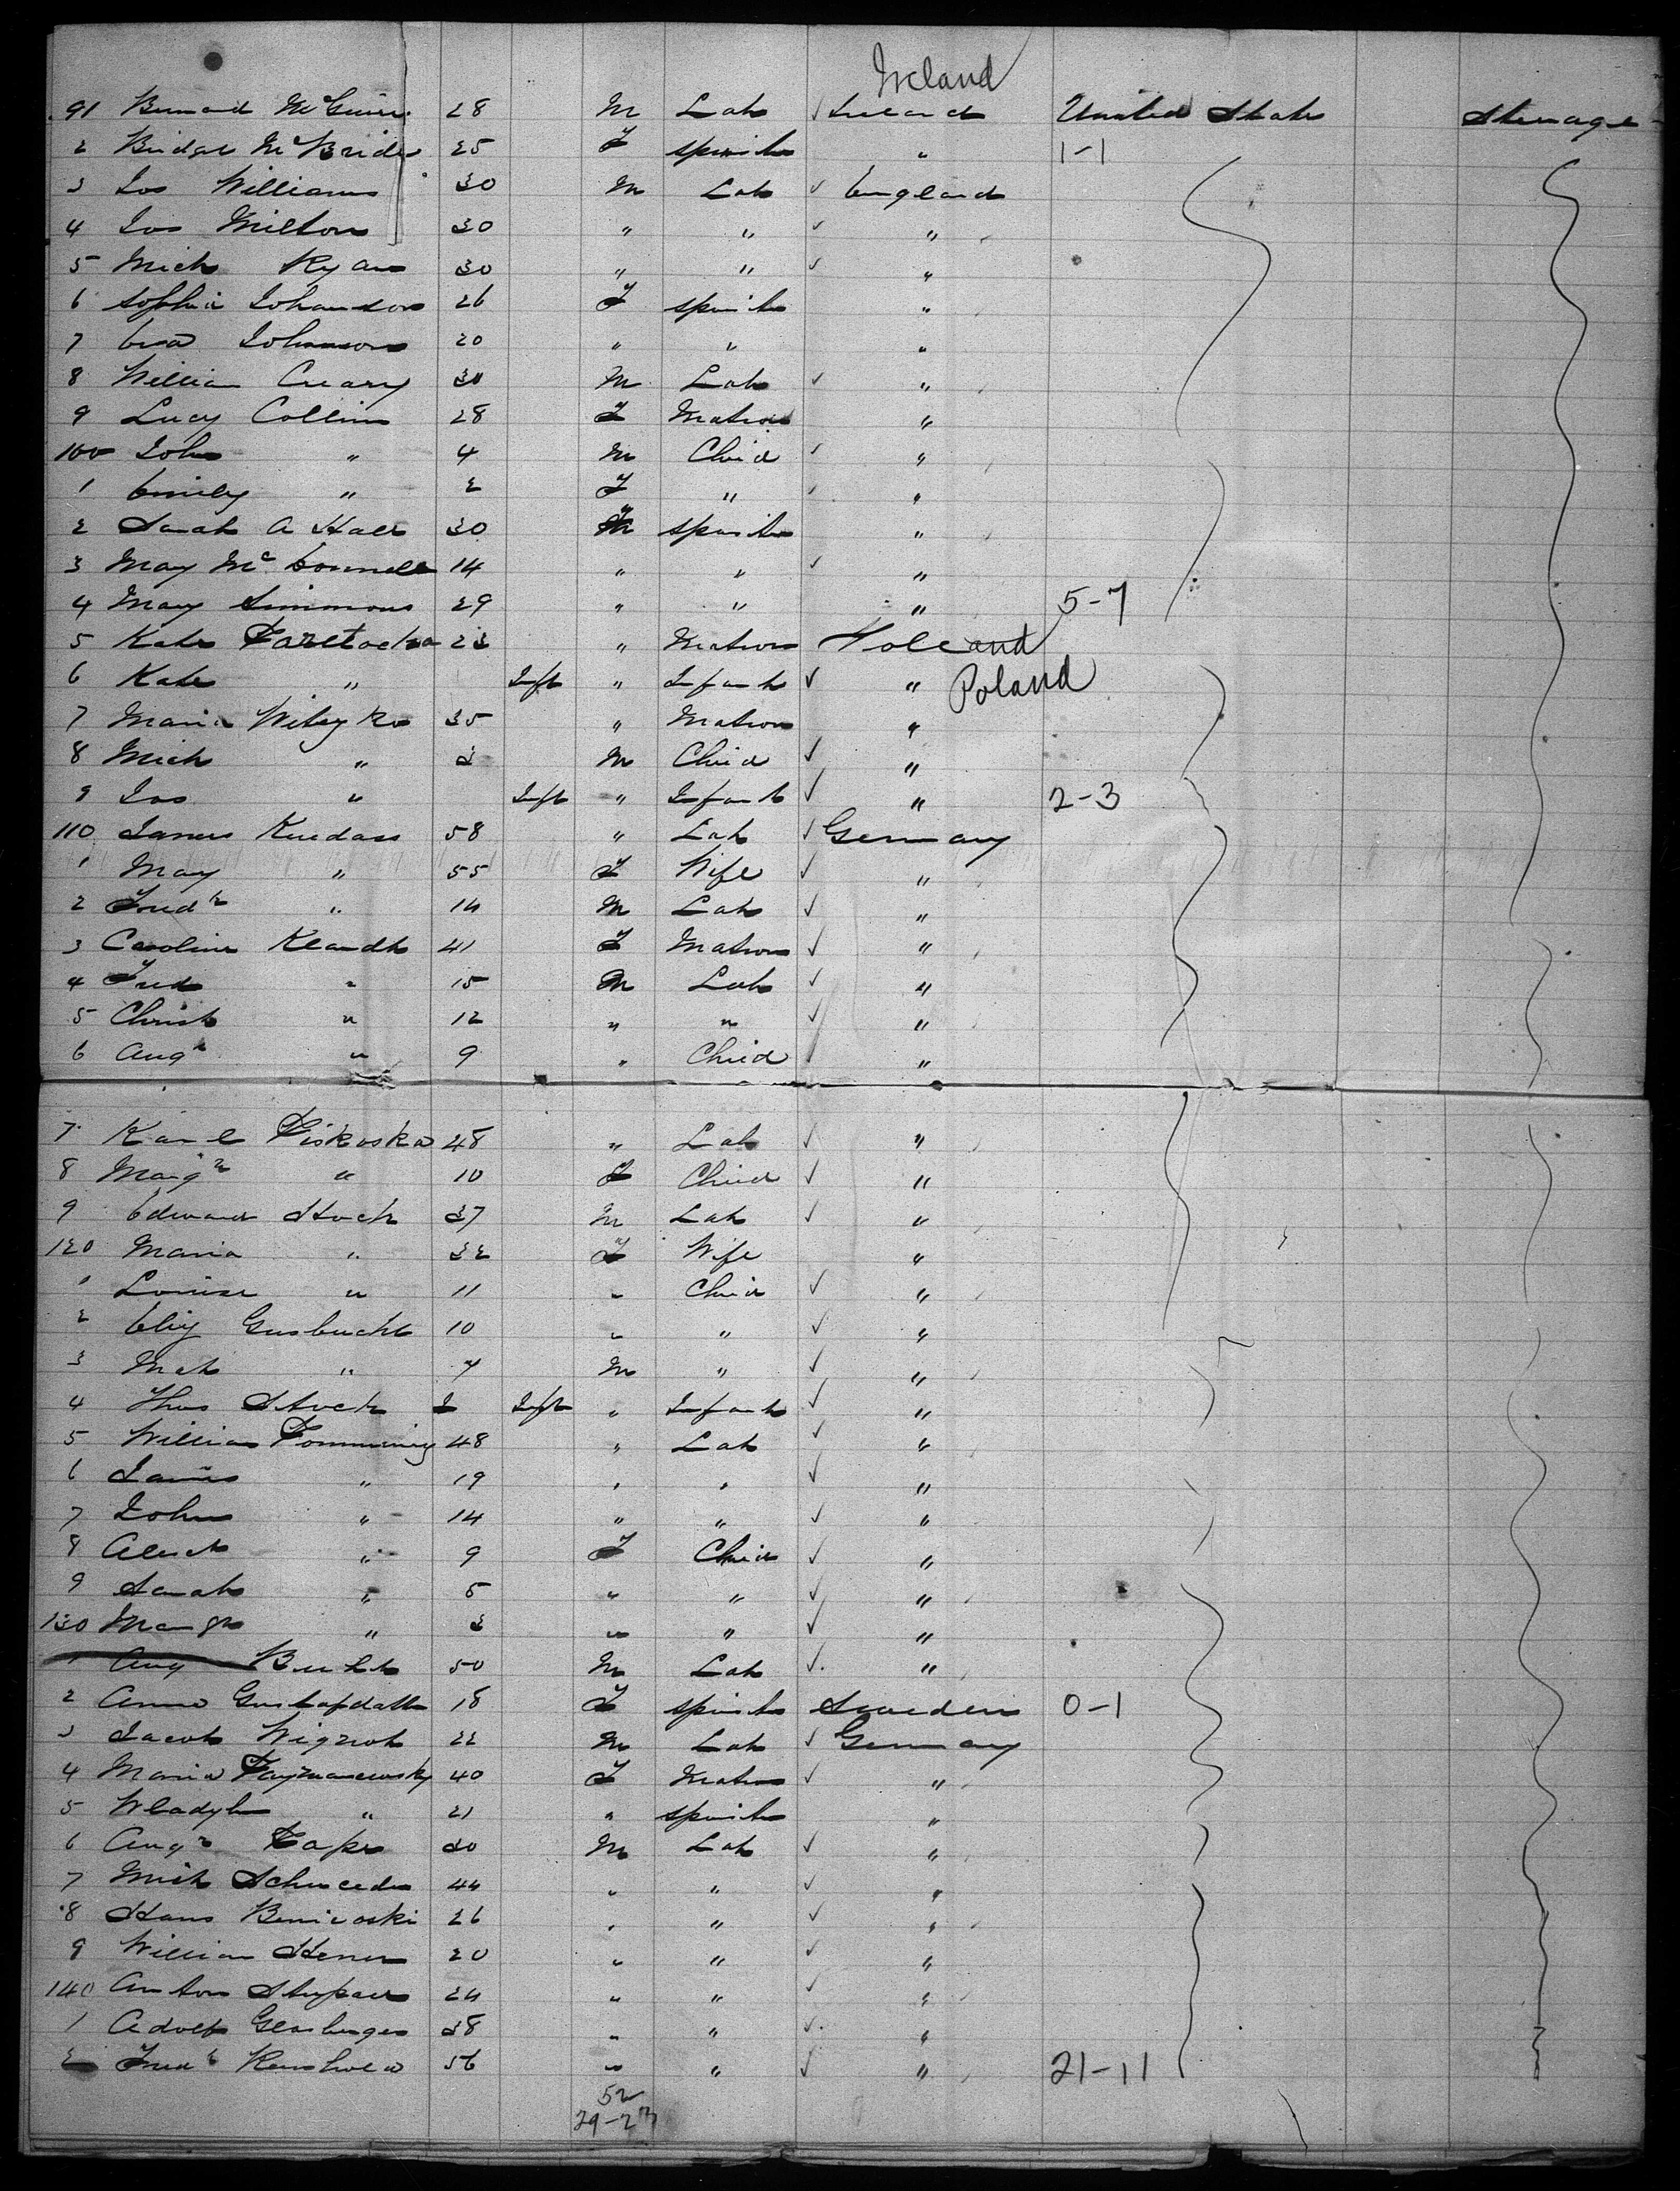 Ireland
91 Bernard McGuire 28 M Lab ✓ Ireland United States Steerage
2 Bridget McBride 25 F Spinster " 1-1
3 Jos Williams 30 M Lab ✓ England
4 Jos Milton 30 " " ✓ "
5 Mich Ryan 30 " " ✓ "
6 Sophia Johanson 26 F Spinster "
7 Johnson 20 " " "
8 William Creary 30 M Lab ✓ "
9 Lucy Collins 28 F Matron "
100 John " 4 M Child ✓ "
1 Emily " 2 F " ✓ "
2 Sarah A Hall 30 F Spinster "
3 May McConnell 14 " " ✓ "
4 Mary Simmons 29 " " " 5-7
5 Kate 23 " Matron Polland
6 Kate " Inft " Infant ✓ " Poland
7 Maria 35 " Matron "
8 Mich " 3 M Child ✓ "
9 Jos " Inft " Infant ✓ " 2-3
110 James Kuedass 58 " Lab ✓ Germany
1 May " 55 F Wife ✓ "
2 Fredk " 14 M Lab ✓ "
3 Caroline Klandt 41 F Matron ✓ "
4 Fred " 15 M Lab ✓ "
5 Christ " 12 " " ✓ "
6 Aug " 9 " Child ✓ "
7 Karl Piskoska 48 " Lab ✓ "
8 Margt " 10 F Child ✓ "
9 Edward Stock 37 M Lab ✓ "
120 Maria " 32 F Wife "
1 Louise " 11 " Child ✓ "
2 Eliz Gusbucht 10 " " ✓ "
3 " 7 M " ✓ "
4 Thos Stock Inft " Infant ✓ "
5 William Pommining 48 " Lab ✓ "
6 James " 19 " " ✓ "
7 John " 14 " " ✓ "
8 " 9 F Child ✓ "
9 Sarah " 5 " " ✓ "
130 Margt " 3 " " ✓ "
1 Aug 50 M Lab ✓ "
2 Anna 18 F Spinster Sweden 0-1
3 Jacob 22 M Lab ✓ Germany
4 Maria 40 F Matron ✓ "
5 " 21 " Spinster "
6 Augt 30 M Lab ✓ "
7 Mich Schneider 44 " " ✓ "
8 Hans 26 " " ✓ "
9 William 20 " " ✓ "
140 Anton 24 " " ✓ "
1 Adolf 38 " " ✓ "
2 Fredk 56 " " ✓ " 21-11
52
29-23